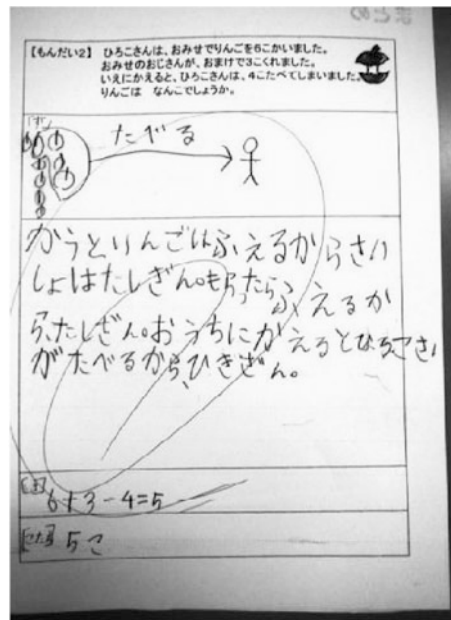 まとめ
【もんだい2】 ひろこさんは、おみせでりんごを6こかいました。
おみせのおじさんが、おまけで3こくれました。
いえにかえると、ひろこさんは、4こたべてしまいました。
りんごは なんこでしょうか。
たべる
かうとりんごはふえるからさい
しょはたしざん。もらったらふえるか
ら、たしざん。おうちにかえるとひろこさん
がたべるから、ひきざん。
6+3-4=5
5こ